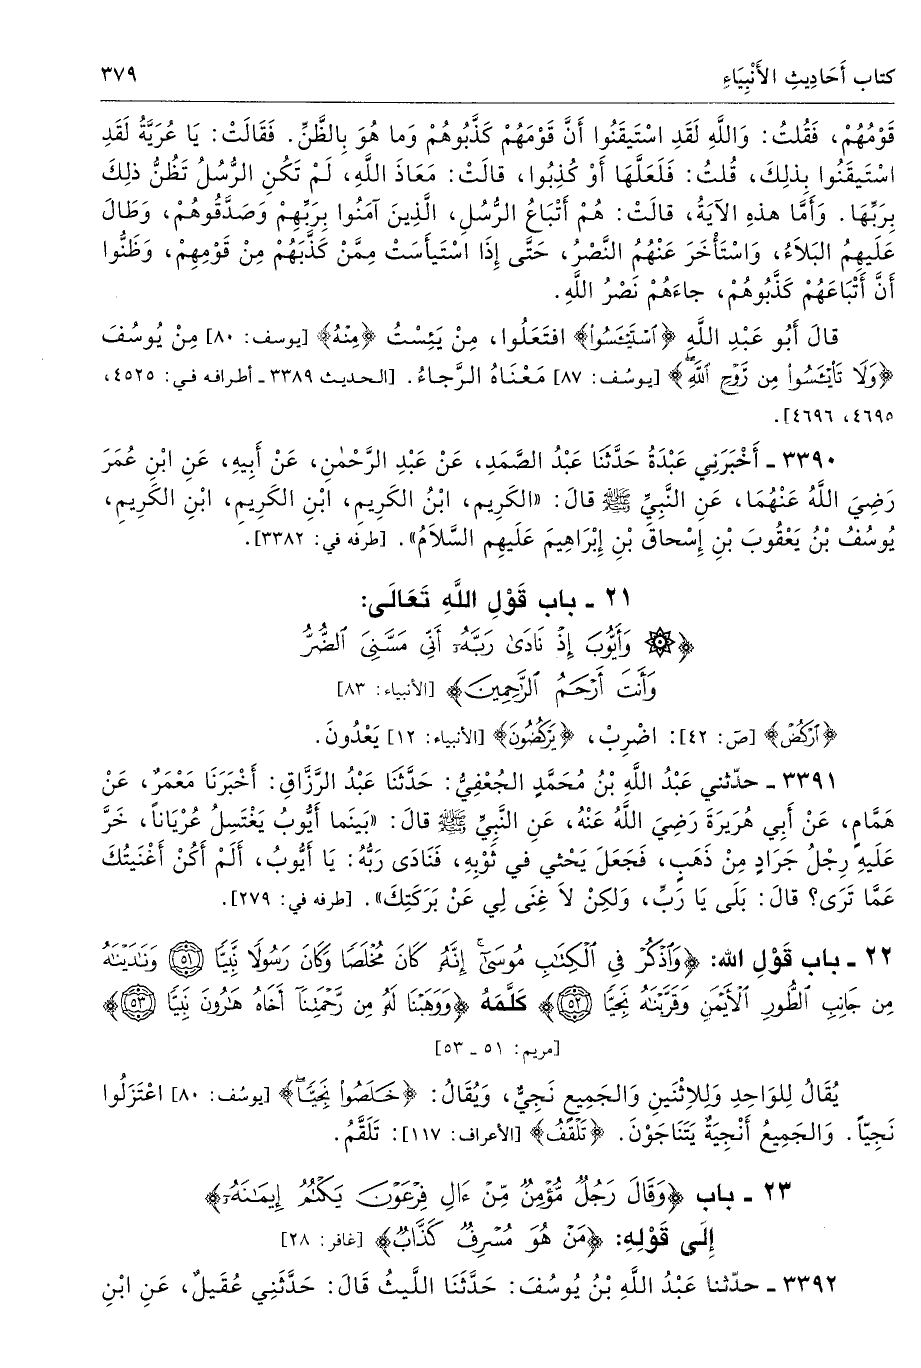 كتاب أَحَادِيثِ الأَنْبِيَاءِ ٣٧٩
قَوْمُهُمْ، فَقُلتُ: وَاللَّهِ لَقَدِ اسْتَيقَنُوا أَنَّ قَوْمَهُمْ كَذَّبُوهُمْ وَما هُوَ بِالظَّنِّ. فَقَالَتْ: يَا عُرَيَّةُ لَقَدِ
اسْتَيقَنُوا بِذلِكَ، قُلتُ: فَلَعَلَّهَا أَوْ كُذِبُوا، قالَتْ: مَعَاذَ اللَّهِ، لَمْ تَكُنِ الرُّسُلُ تَظُنُّ ذلِكَ
بِرَبِّهَا. وَأَمَّا هذهِ الآيَةُ، قالَتْ: هُمْ أَتْبَاعُ الرُّسُلِ، الَّذِينَ آمَنُوا بِرَبِّهِمْ وَصَدَّقُوهُمْ، وَطَالَ
عَلَيهِمُ البَلاَءُ، وَاسْتَأْخَرَ عَنْهُمُ النَّصْرُ، حَتَّى إِذَا اسْتَيأَسَتْ مِمَّنْ كَذَّبَهُمْ مِنْ قَوْمِهِمْ، وَظَنُّوا
أَنَّ أَتْبَاعَهُمْ كَذَّبُوهُمْ، جاءَهُمْ نَصْرُ اللَّهِ.
قالَ أَبُو عَبْدِ اللَّهِ ﴿ٱسۡتَيۡـَٔسُوا۟﴾ افتَعَلُوا، مِنْ يَئِسْتُ ﴿مِنْهُ﴾ [يوسف: ٨٠] مِنْ يُوسُفَ
﴿وَلَا تَا۟يۡـَٔسُوا۟ مِن رَّوۡحِ ٱللَّهِۖ﴾ [يوسُف: ٨٧] مَعْنَاهُ الرَّجاءُ. [الحديث ٣٣٨٩ ـ أطرافه في: ٤٥٢٥،
٤٦٩٥، ٤٦٩٦].
٣٣٩٠ ـ أَخْبَرَنِي عَبْدَةُ حَدَّثَنَا عَبْدُ الصَّمَدِ، عَنْ عَبْدِ الرَّحْمٰنِ، عَنْ أَبِيهِ، عَنِ ابْنِ عُمَرَ
رَضِيَ اللَّهُ عَنْهُمَا، عَنِ النَّبِيِّ ﷺ قالَ: «الكَرِيم، ابْنُ الكَرِيمِ، ابْنِ الكَرِيمِ، ابْنِ الكَرِيمِ،
يُوسُفُ بْنُ يَعْقُوبَ بْنِ إِسْحاقَ بْنِ إِبْرَاهِيمَ عَلَيهِم السَّلاَمُ». [طرفه في: ٣٣٨٢].
٢١ ـ باب قَوْلِ اللَّهِ تَعَالَى:
﴿۞ وَأَيُّوبَ إِذۡ نَادَىٰ رَبَّهُۥٓ أَنِّي مَسَّنِيَ ٱلضُّرُّ
وَأَنتَ أَرۡحَمُ ٱلرَّٰحِمِينَ﴾ [الأنبياء: ٨٣]
﴿ٱرۡكُضۡ﴾ [صَ: ٤٢]: اضْرِبْ، ﴿يَرۡكُضُونَ﴾ [الأنبياء: ١٢] يَعْدُونَ.
٣٣٩١ ـ حدّثني عَبْدُ اللَّهِ بْنُ مُحَمَّدٍ الجُعْفِيُّ: حَدَّثَنَا عَبْدُ الرَّزَّاقِ: أَخْبَرَنَا مَعْمَرٌ، عَنْ
هَمَّامٍ، عَنْ أَبِي هُرَيرَةَ رَضِيَ اللَّهُ عَنْهُ، عَنِ النَّبِيِّ ﷺ قالَ: «بَينَما أَيُّوبُ يَغْتَسِلُ عُرْيَاناً، خَرَّ
عَلَيهِ رِجْلُ جَرَادٍ مِنْ ذَهَبٍ، فَجَعَلَ يَحْثي في ثَوْبِهِ، فَنَادَى رَبُّهُ: يَا أَيُّوبُ، أَلَمْ أَكُنْ أَغْنَيتُكَ
عَمَّا تَرَى؟ قالَ: بَلَى يَا رَبِّ، وَلكِنْ لاَ غِنَى لِي عَنْ بَرَكَتِكَ». [طرفه في: ٢٧٩].
٢٢ ـ باب قَوْلِ الله: ﴿وَٱذۡكُرۡ فِي ٱلۡكِتَٰبِ مُوسَىٰٓۚ إِنَّهُۥ كَانَ مُخۡلَصٗا وَكَانَ رَسُولٗا نَّبِيّٗا ٥١ وَنَٰدَيۡنَٰهُ
مِن جَانِبِ ٱلطُّورِ ٱلۡأَيۡمَنِ وَقَرَّبۡنَٰهُ نَجِيّٗا ٥٢﴾ كَلَّمَهُ ﴿وَوَهَبۡنَا لَهُۥ مِن رَّحۡمَتِنَآ أَخَاهُ هَٰرُونَ نَبِيّٗا ٥٣﴾
[مريم: ٥١ ـ ٥٣]
يُقَالُ لِلوَاحِدِ وَلِلاِثْنَينِ وَالجَمِيعِ نَجِيٌّ، وَيُقَالُ: ﴿خَلَصُوا۟ نَجِيّٗاۖ﴾ [يوسُف: ٨٠] اعْتَزَلُوا
نَجِيّاً. وَالجَمِيعُ أَنْجِيَةٌ يَتَنَاجَوْنَ. ﴿تَلۡقَفُ﴾ [الأعراف: ١١٧]: تَلَقَّمُ.
٢٣ ـ باب ﴿وَقَالَ رَجُلٞ مُّؤۡمِنٞ مِّنۡ ءَالِ فِرۡعَوۡنَ يَكۡتُمُ إِيمَٰنَهُۥٓ﴾
إِلَى قَوْلِهِ: ﴿مَنۡ هُوَ مُسۡرِفٞ كَذَّابٞ﴾ [غافر: ٢٨]
٣٣٩٢ ـ حدّثنا عَبْدُ اللَّهِ بْنُ يُوسُفَ: حَدَّثَنَا اللَّيثُ قَالَ: حَدَّثَنِي عُقَيلٌ، عَنِ ابْنِ